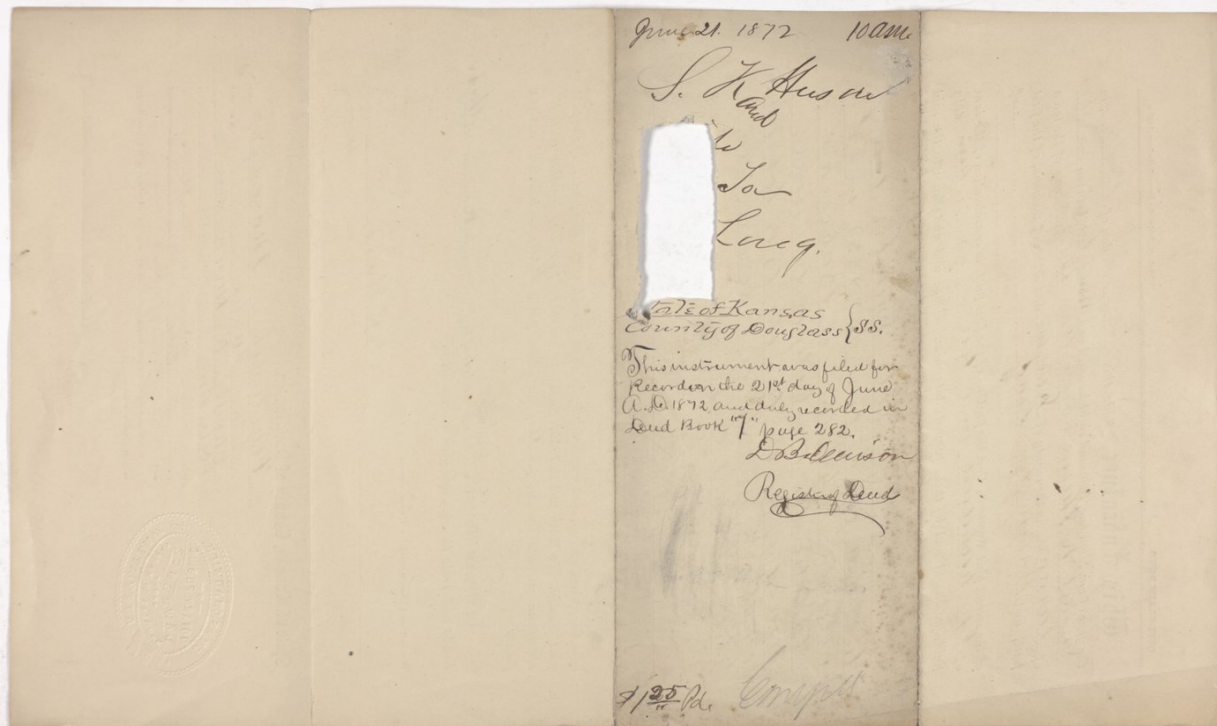 June 21. 1872 10 am.
S. K Huson
and
To
Long.
State of Kansas
County of Douglass } SS.
This instrument was filed for
Record on the 21st day of June
A.D. 1872, and duly recorded in
Deed Book "7" page 282.
Register of Deed
$1 25 Pd.